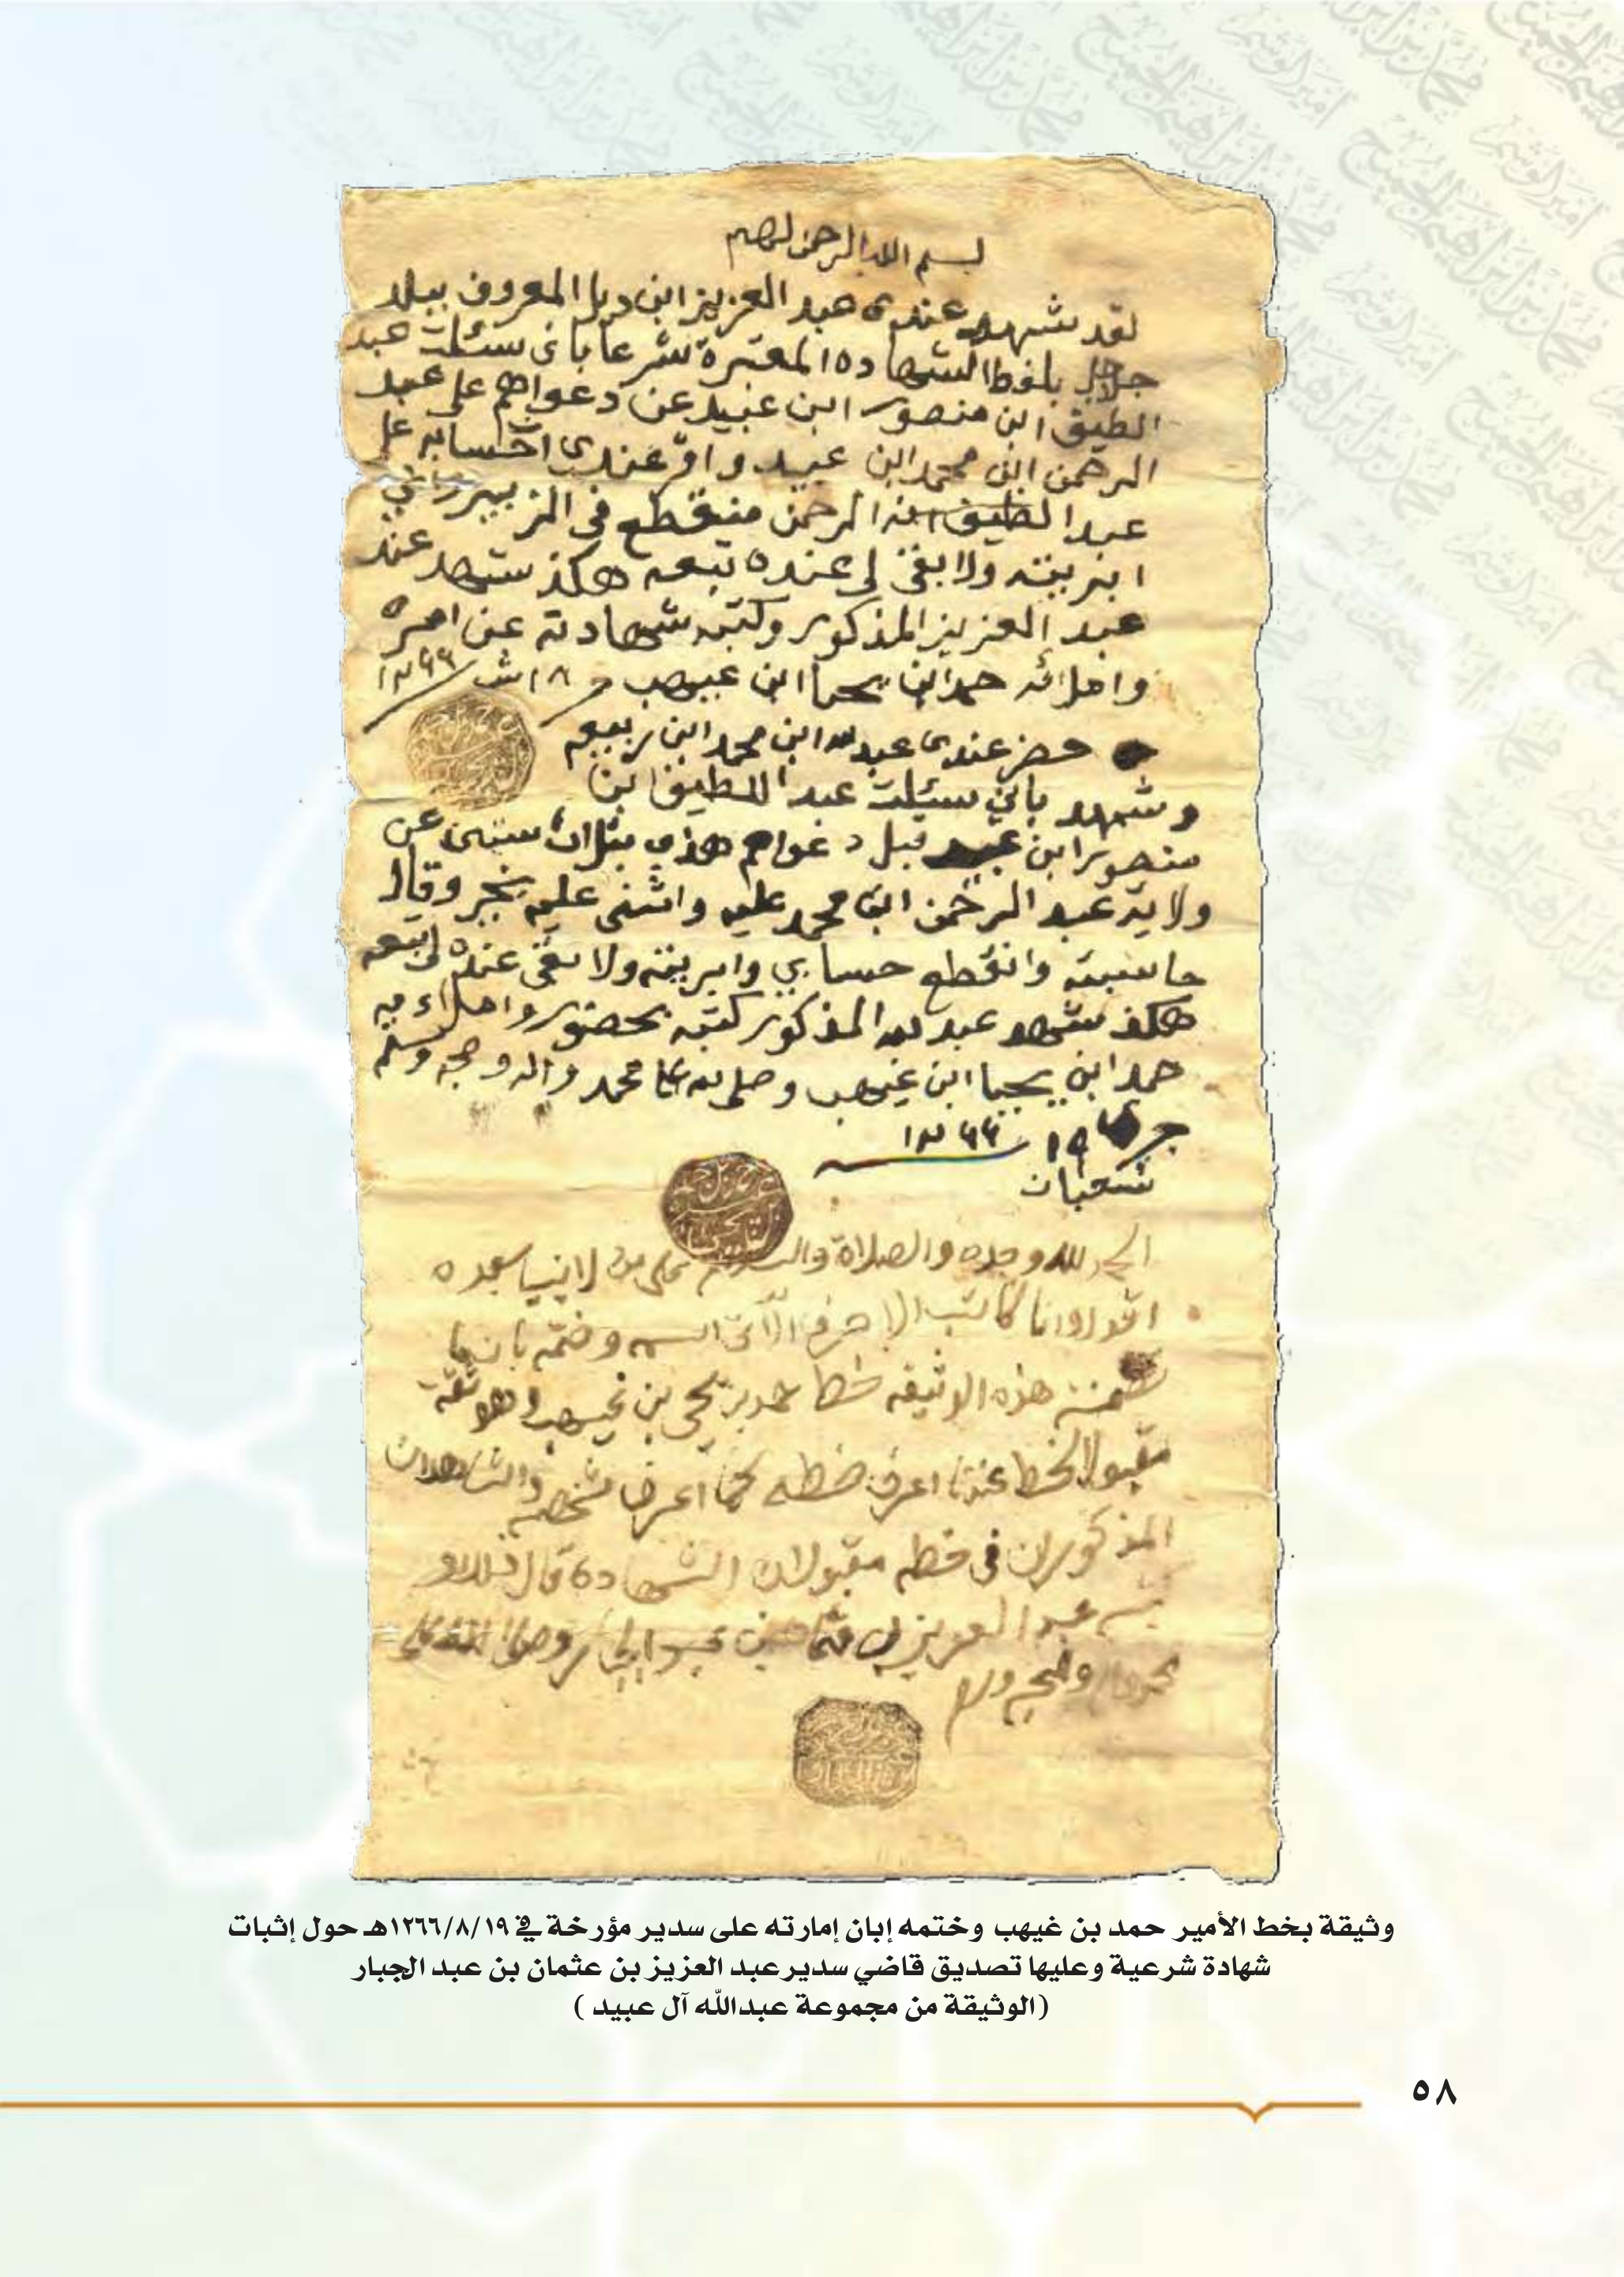 بسم الله الرحمن الرحيم
لقد شهد عندي عبد العزيز ابن المعروف ببلد
جلاجل بلفظ الشهاده المعتبرة شرعا باني سئلت عبد
الطيف ابن منصور ابن عبيد عن دعواهم على عبد
الرحمن ابن محمد ابن عبيد واقر عندي
عبد الطيف انه الرحمن منقطع في الزبير
ابريته ولا بقى لي عنده تبعه هكذ شهد عند
عبد العزيز المذكور وكتبه شهادته عن امره
واملائه حمد ابن يحيا ابن غيهب ١٨ ش ١٢٦٦
حضر عندي عبد لله ابن محمد ابن ربيعه
وشهد باني سئلت عبد اللطيف ابن
منصور ابن عبيد قبل دعواهم هذي بثلاث سنين عن
ولاية عبد الرحمن ابن محمد عليه واثنى عليه بخير وقال
حاسبته وانقطع حسابي وابريته ولا بقى عنده لي تبعه
هكذ شهد عبد لله المذكور كتبه بحضور واملاء
حمد ابن يحيا ابن غيهب وصلى لله على محمد واله وصحبه وسلم
١٩ ١٢٦٦
شعبان
الحمد لله وحده والصلاة والسلام على من لا نبي بعده
اقول وانا كاتب الاحرف الآتي اسمه وختمه بان ما
تضمنه هذه الوثيقه خط حمد بن يحيى بن غيهب وهو ثقة
مقبول الخط عندنا اعرف خطه كما اعرف شخصه والشاهدان
المذكوران في خطه مقبولان الشهادة قال ذلك و
عبد العزيز بن عثمان بن عبد الجبار وصلى الله على
محمد واله وصحبه وسلم
وثيقة بخط الأمير حمد بن غيهب وختمه إبان إمارته على سدير مؤرخة في ١٢٦٦/٨/١٩هـ حول إثبات
شهادة شرعية وعليها تصديق قاضي سدير عبد العزيز بن عثمان بن عبد الجبار
(الوثيقة من مجموعة عبدالله آل عبيد )
٥٨